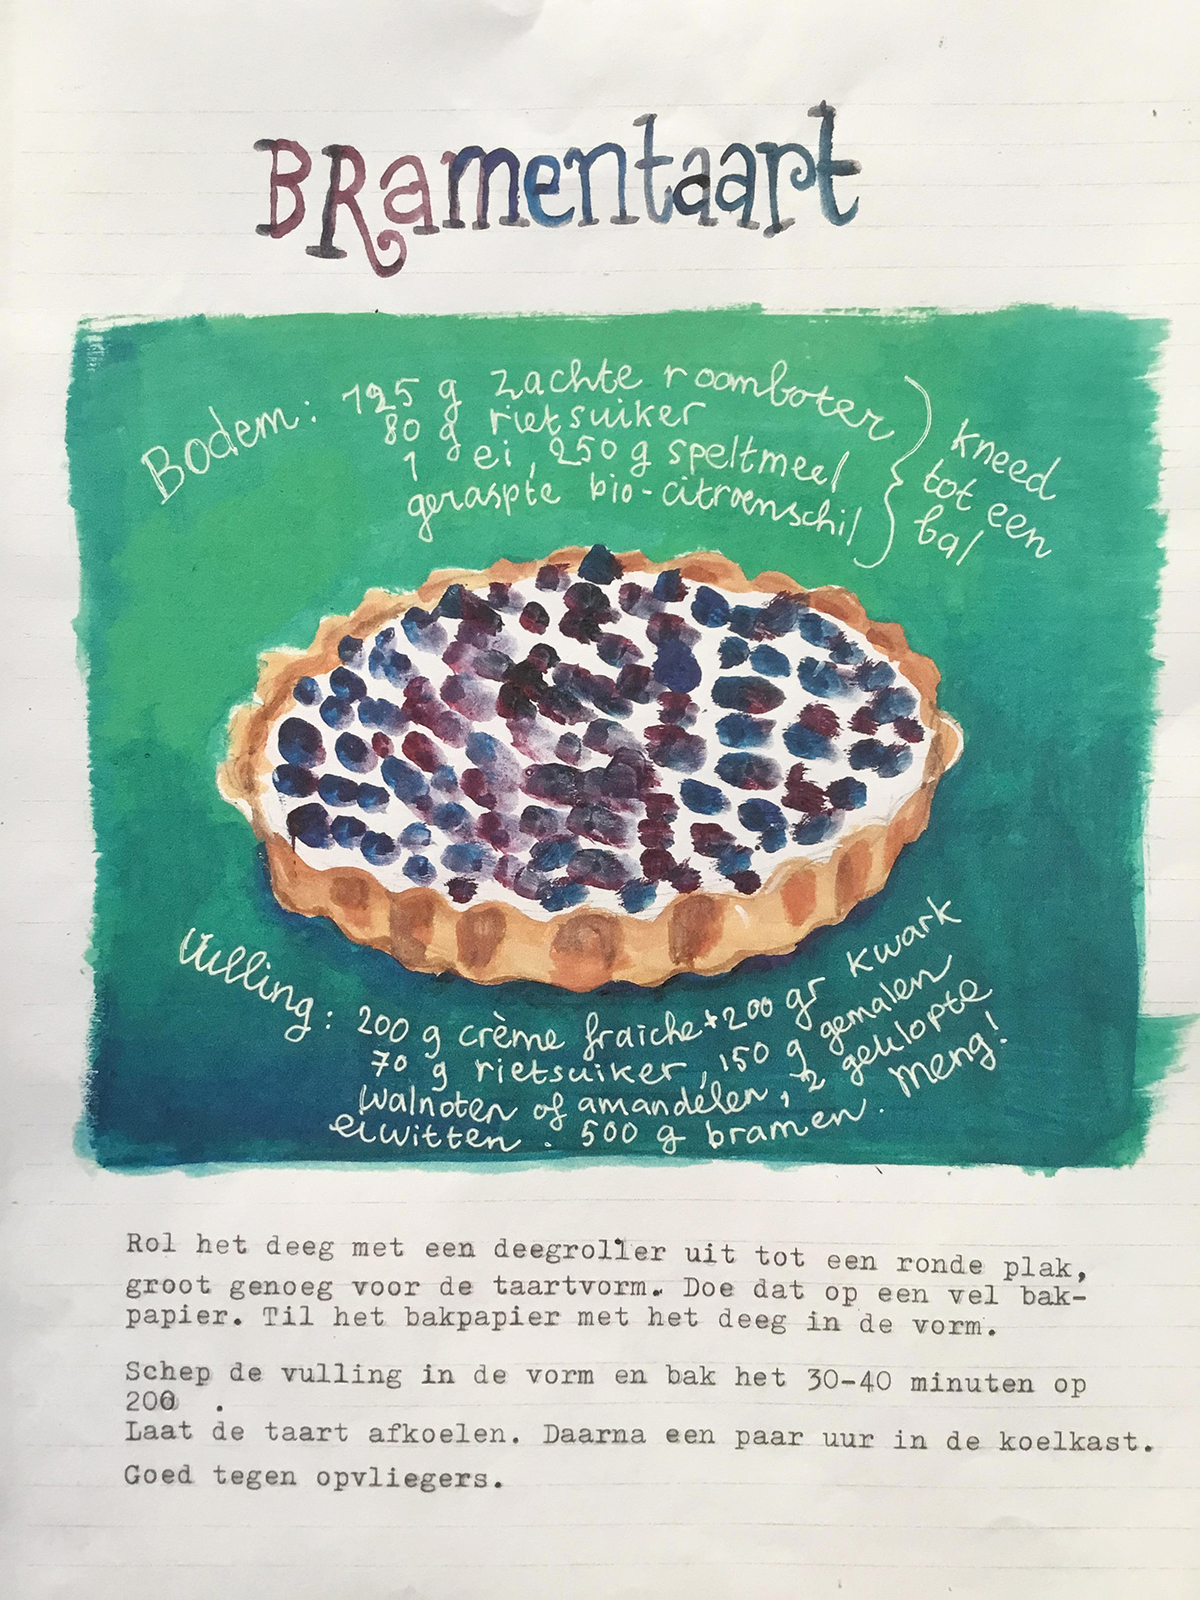 BRamentaart
Bodem: 125 g zachte roomboter
80 g rietsuiker
1 ei, 250 g speltmeel
geraspte bio-citroenschil
kneed
tot een
bal
Vulling: 200 g crème fraiche + 200 gr kwark
70 g rietsuiker, 150 g gemalen
walnoten of amandelen, 2 geklopte
eiwitten. 500 g bramen. Meng!
Rol het deeg met een deegroller uit tot een ronde plak,
groot genoeg voor de taartvorm. Doe dat op een vel bak-
papier. Til het bakpapier met het deeg in de vorm.
Schep de vulling in de vorm en bak het 30-40 minuten op
200 .
Laat de taart afkoelen. Daarna een paar uur in de koelkast.
Goed tegen opvliegers.